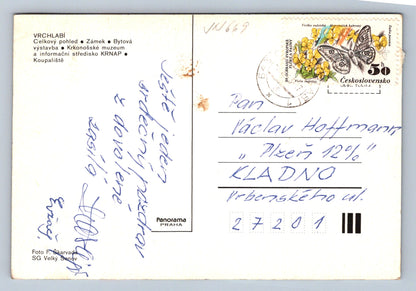 VRCHLABÍ
Celkový pohled • Zámek • Bytová
výstavba • Krkonošské muzeum
a informační středisko KRNAP •
Koupaliště
JN 669
50 h
Československo
Pan
Václav Hoffmann
"Plzeň 12%"
KLADNO
Vrbenského ul.
27201
Ještě jeden
srdečný pozdrav
z dovolené
Panorama
PRAHA
Foto F. Skarvada
SG Velký Šenov